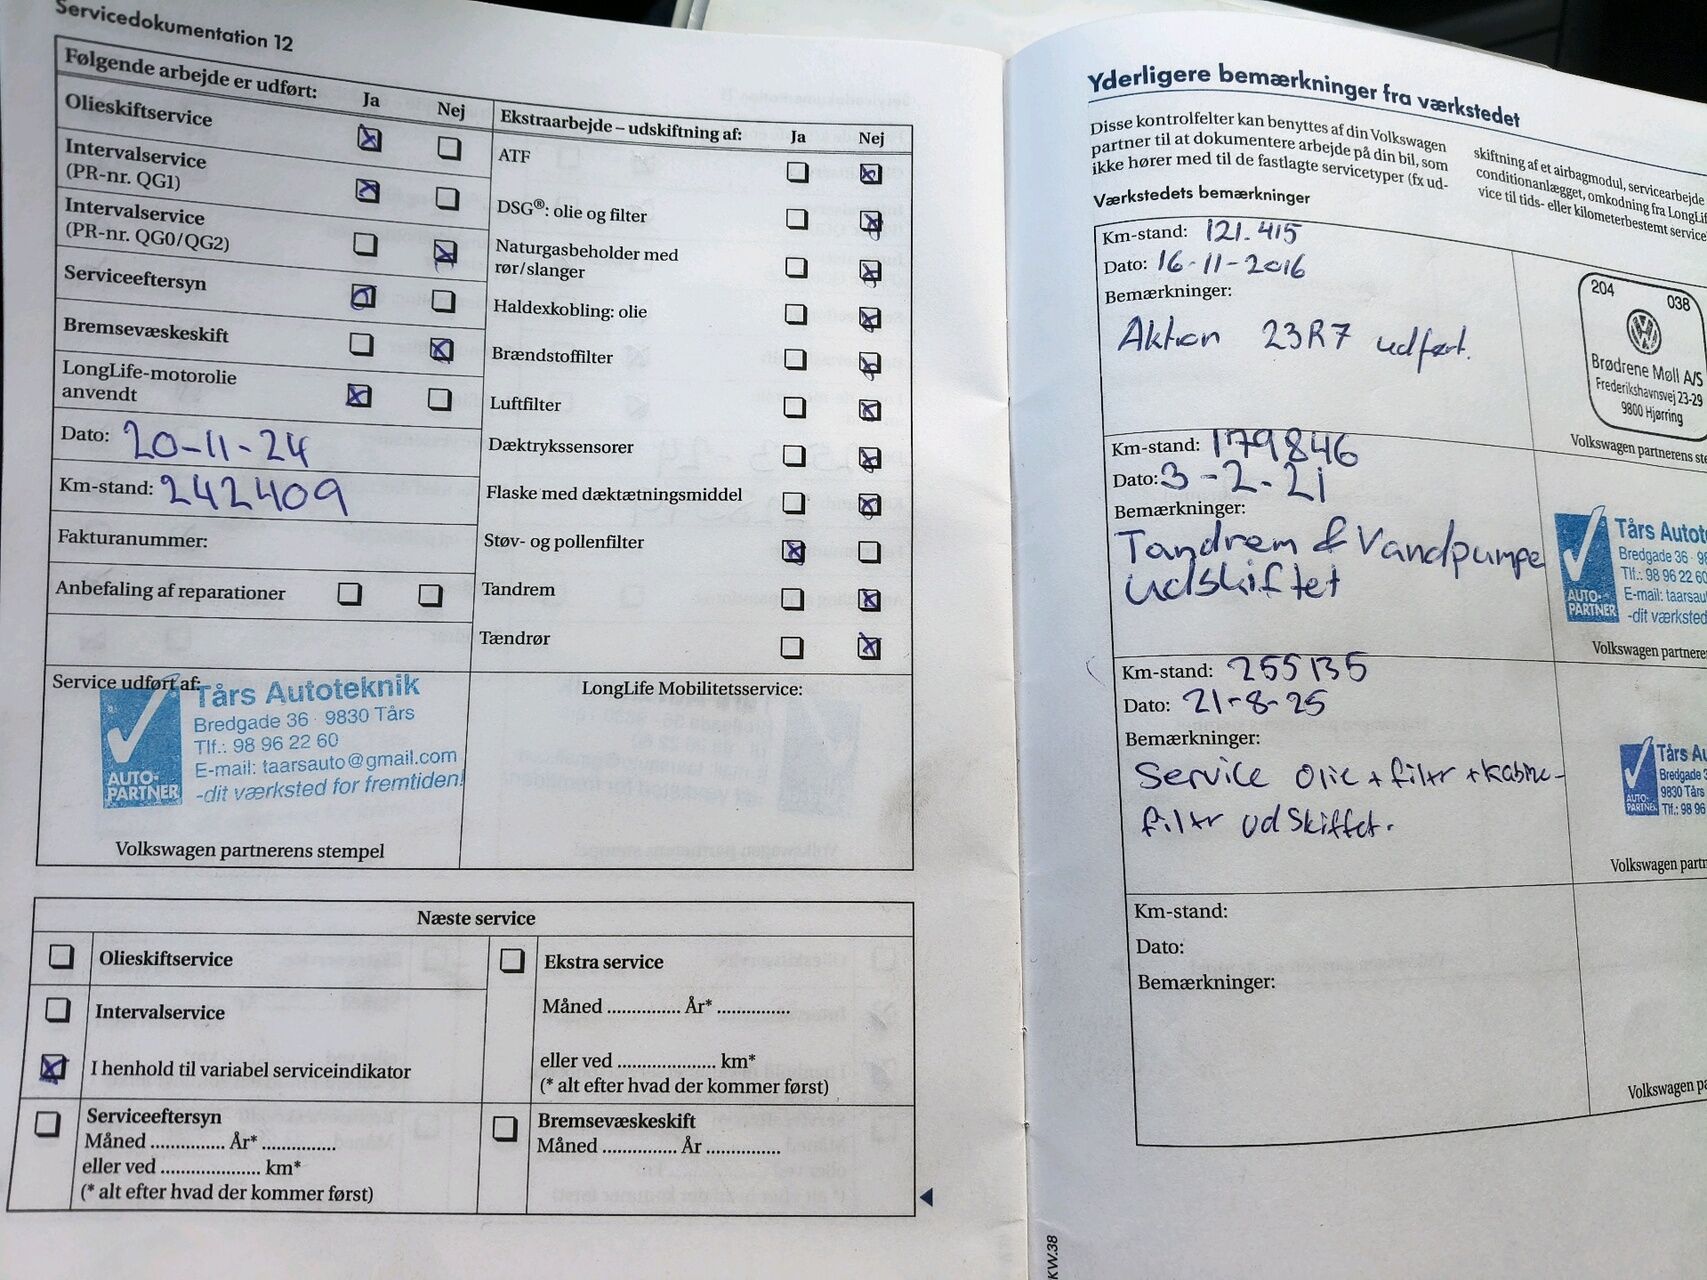 Servicedokumentation 12
Følgende arbejde er udført:
Ja
Nej
Olieskiftservice
Intervalservice
(PR-nr. QG1)
Intervalservice
(PR-nr. QG0/QG2)
Serviceeftersyn
Bremsevæskeskift
LongLife-motorolie
anvendt
Dato: 20-11-24
Km-stand: 242409
Fakturanummer:
Anbefaling af reparationer
Ekstraarbejde – udskiftning af:
Ja
Nej
ATF
DSG®: olie og filter
Naturgasbeholder med
rør/slanger
Haldexkobling: olie
Brændstoffilter
Luftfilter
Dæktrykssensorer
Flaske med dæktætningsmiddel
Støv- og pollenfilter
Tandrem
Tændrør
Service udført af:
Tårs Autoteknik
Bredgade 36 · 9830 Tårs
Tlf.: 98 96 22 60
E-mail: taarsauto@gmail.com
-dit værksted for fremtiden!
AUTO-
PARTNER
Volkswagen partnerens stempel
LongLife Mobilitetsservice:
Næste service
Olieskiftservice
Intervalservice
I henhold til variabel serviceindikator
Serviceeftersyn
Måned .............. År* ..............
eller ved .................... km*
(* alt efter hvad der kommer først)
Ekstra service
Måned .............. År* ..............
eller ved .................... km*
(* alt efter hvad der kommer først)
Bremsevæskeskift
Måned .............. År ..............
Yderligere bemærkninger fra værkstedet
Disse kontrolfelter kan benyttes af din Volkswagen
partner til at dokumentere arbejde på din bil, som
ikke hører med til de fastlagte servicetyper (fx ud-
skiftning af et airbagmodul, servicearbejde
conditionanlægget, omkodning fra LongLif
vice til tids- eller kilometerbestemt service
Værkstedets bemærkninger
Km-stand: 121.415
Dato: 16-11-2016
Bemærkninger:
Aktion 23R7 udført.
204 038
Brødrene Møll A/S
Frederikshavnsvej 23-29
9800 Hjørring
Volkswagen partnerens ste
Km-stand: 179846
Dato: 3-2-21
Bemærkninger:
Tandrem & Vandpumpe
udskiftet
Tårs Autot
Bredgade 36 · 98
Tlf.: 98 96 22 60
E-mail: taarsau
-dit værksted
AUTO-
PARTNER
Volkswagen partnerens
Km-stand: 255135
Dato: 21-8-25
Bemærkninger:
Service olie + filtr + kabine-
filtr udskiftet.
Tårs Au
Bredgade 3
9830 Tårs
Tlf.: 98 96
AUTO-
PARTNER
Volkswagen partn
Km-stand:
Dato:
Bemærkninger:
Volkswagen pa
KW.38